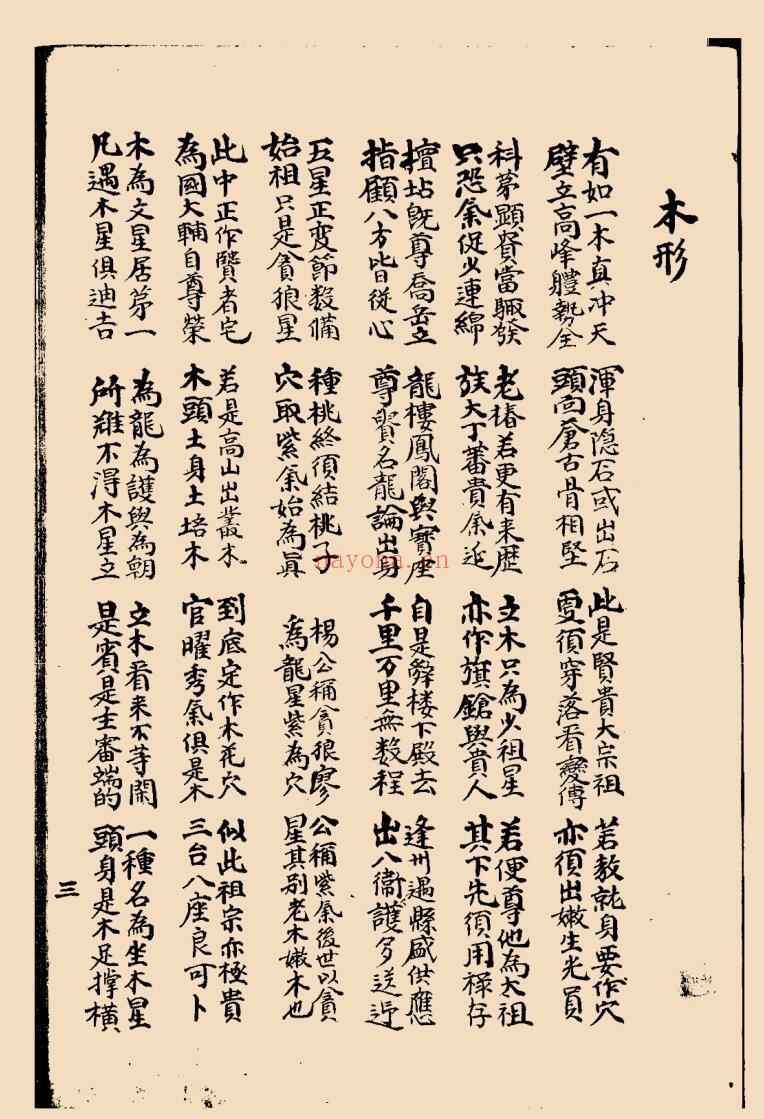 木形
有如一木真冲天
壁立高峰體勢全
渾身隐石或出石
頭面蒼古骨相堅
此是賢貴大宗祖
須穿落看變傳
若教就身要作穴
亦須出嫩生光員
科苐顯貲當驟發
只恐氣促少連綿
老椿若更有来歷
族大丁蕃貴氣延
立木只為少祖星
亦作旗鎗與貴人
若便尊他為太祖
其下先須用禄存
坫旣尊喬岳立
指顧八方皆從心
龍樓鳳閣與寶座
尊貴名龍論出身
自是辞楼下殿去
千里万里無数程
逢州遇縣盛供應
出入衛護多送迎
五星正变節数備
始祖只是貪狼星
種桃終須結桃子
穴取紫氣始為眞
楊公稱貪狼廖公稱紫氣後世以貪
為龍星紫為穴星其别老木嫩木也
此中正作賢者宅
為國大輔自尊榮
若是高山出叢木
木頭土身土培木
到底定作木花穴
官曜秀氣俱是木
似此祖宗亦極貴
三台八座良可卜
木為文星居苐一
凡遇木星俱迪吉
為龍為護與為朝
所難不得木星立
立木看来不等閑
是賓是主審端的
一種名為坐木星
頭身是木足撑横
三
nayona.cn